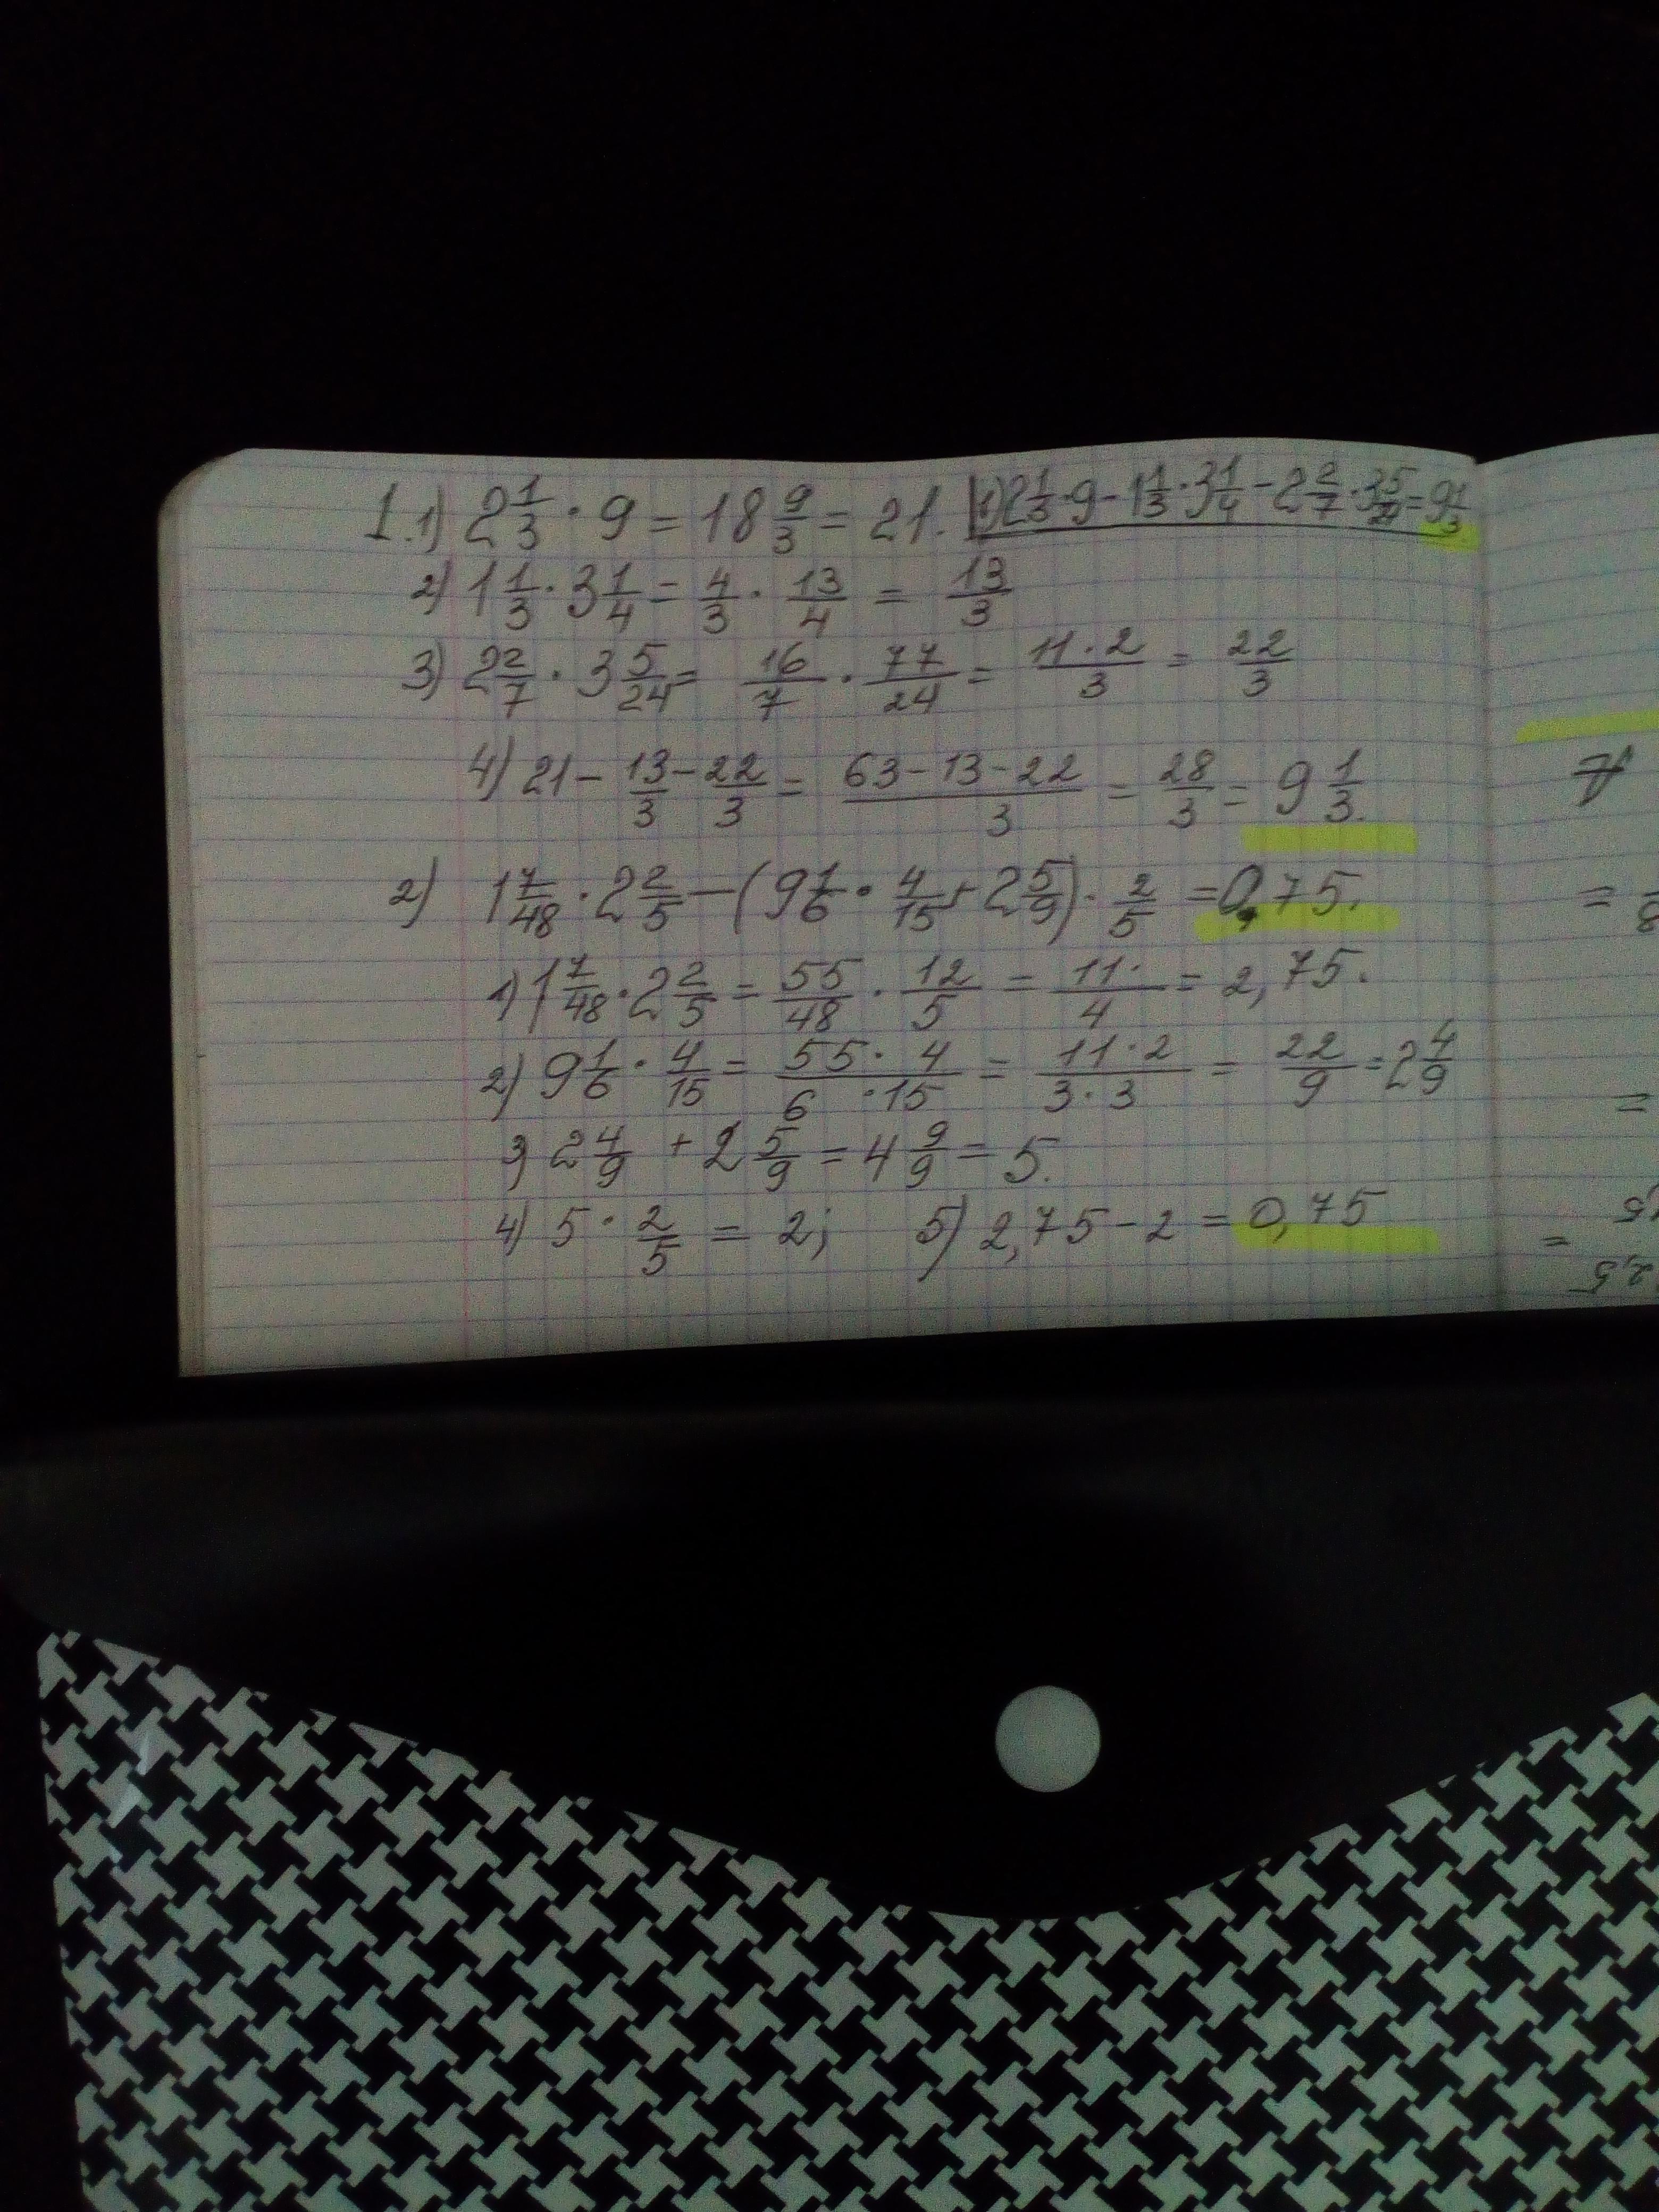 1. 1) 2 1/3 · 9 = 18 9/3 = 21. 1) 2 1/3 · 9 - 1 1/3 · 3 1/4 - 2 2/7 · 3 5/24 = 9 1/3
2) 1 1/3 · 3 1/4 = 4/3 · 13/4 = 13/3
3) 2 2/7 · 3 5/24 = 16/7 · 77/24 = 11·2/3 = 22/3
4) 21 - 13/3 - 22/3 = 63-13-22/3 = 28/3 = 9 1/3.
2) 1 7/48 · 2 2/5 - (9 1/6 · 4/15 + 2 5/9) · 2/5 = 0,75.
1) 1 7/48 · 2 2/5 = 55/48 · 12/5 = 11·/4 = 2,75.
2) 9 1/6 · 4/15 = 55·4/6·15 = 11·2/3·3 = 22/9 = 2 4/9
3) 2 4/9 + 2 5/9 = 4 9/9 = 5.
4) 5 · 2/5 = 2; 5) 2,75 - 2 = 0,75